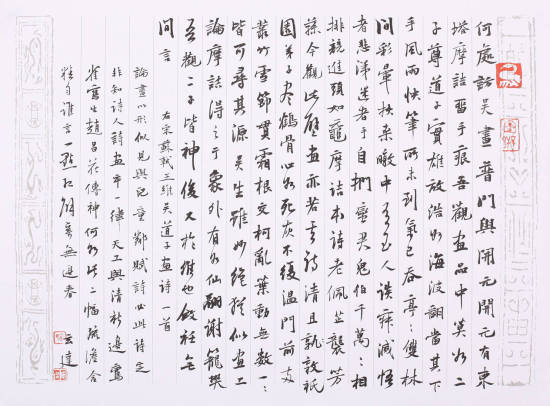 何處訪吴畫普門與開元開元有東
塔摩詰留手痕吾觀畫品中莫如二
子尊道子實雄放浩如海波翻當其下
手風雨快筆所未到氣已吞亭〻雙林
間彩暈扶桑暾中有至人談寂滅悟
者悲涕迷者手自捫蠻君鬼伯千萬〻相
排競進頭如黿摩詰本詩老佩芷襲芳
蓀今觀此壁畫亦若其詩清且敦祇
園弟子盡鶴骨心如死灰不復温門前支
叢竹雪節貫霜根交柯亂葉動無數一〻
皆可尋其源吴生雖妙絶猶以畫工
論摩詰得之于象外有如仙翮謝籠樊
吾觀二子皆神俊又於維也斂衽無
間言
右宋蘇軾王維吴道子畫詩一首
論畫以形似見與兒童鄰賦詩必此詩定
非知詩人詩畫本一律天工與清新邊鸞
雀寫生趙昌花傳神何如此二幅疏澹含
精勻誰言一點紅解寄無邊春
云達